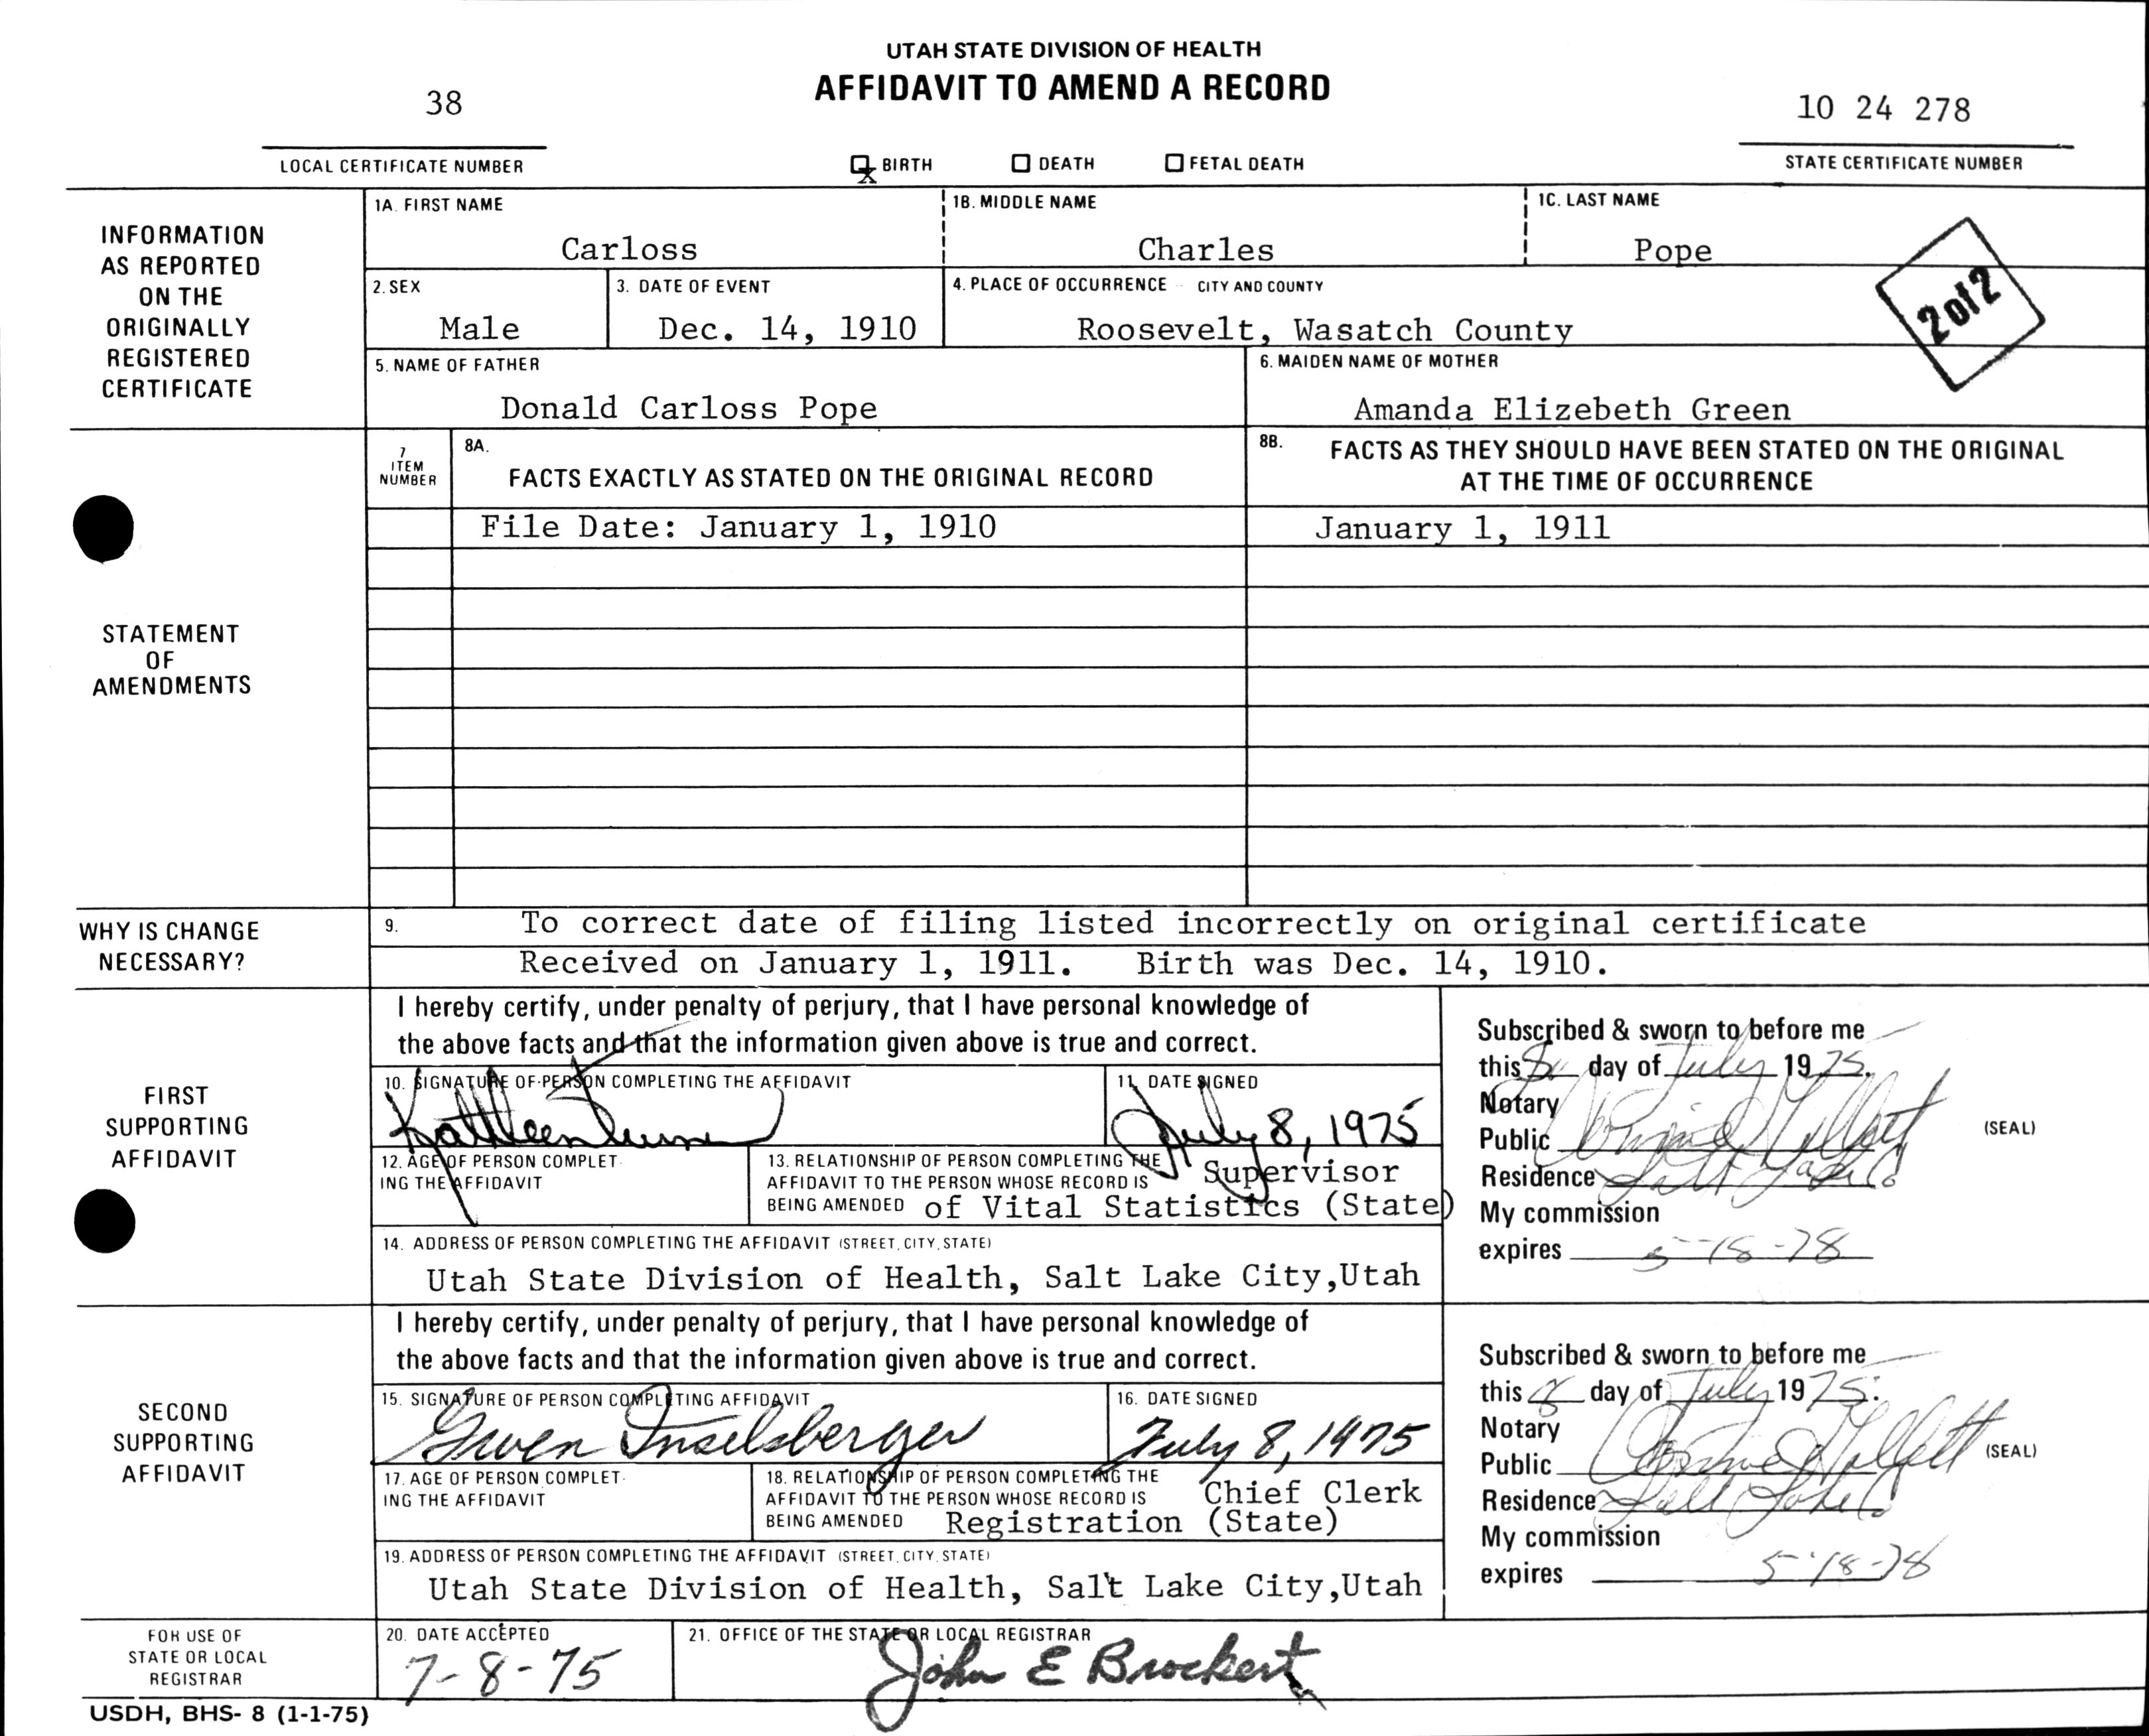 UTAH STATE DIVISION OF HEALTH
AFFIDAVIT TO AMEND A RECORD
38
10 24 278
LOCAL CERTIFICATE NUMBER
X BIRTH DEATH FETAL DEATH
STATE CERTIFICATE NUMBER
INFORMATION
AS REPORTED
ON THE
ORIGINALLY
REGISTERED
CERTIFICATE
1A. FIRST NAME
Carloss
1B. MIDDLE NAME
Charles
1C. LAST NAME
Pope
2 of 2
2. SEX
Male
3. DATE OF EVENT
Dec. 14, 1910
4. PLACE OF OCCURRENCE CITY AND COUNTY
Roosevelt, Wasatch County
5. NAME OF FATHER
Donald Carloss Pope
6. MAIDEN NAME OF MOTHER
Amanda Elizebeth Green
STATEMENT
OF
AMENDMENTS
7
ITEM
NUMBER
8A.
FACTS EXACTLY AS STATED ON THE ORIGINAL RECORD
8B. FACTS AS THEY SHOULD HAVE BEEN STATED ON THE ORIGINAL
AT THE TIME OF OCCURRENCE
File Date: January 1, 1910
January 1, 1911
WHY IS CHANGE
NECESSARY?
9. To correct date of filing listed incorrectly on original certificate
Received on January 1, 1911. Birth was Dec. 14, 1910.
FIRST
SUPPORTING
AFFIDAVIT
I hereby certify, under penalty of perjury, that I have personal knowledge of
the above facts and that the information given above is true and correct.
10. SIGNATURE OF PERSON COMPLETING THE AFFIDAVIT
Kathleen
11. DATE SIGNED
July 8, 1975
12. AGE OF PERSON COMPLET-
ING THE AFFIDAVIT
13. RELATIONSHIP OF PERSON COMPLETING THE
AFFIDAVIT TO THE PERSON WHOSE RECORD IS
BEING AMENDED
Supervisor
of Vital Statistics (State)
14. ADDRESS OF PERSON COMPLETING THE AFFIDAVIT (STREET, CITY, STATE)
Utah State Division of Health, Salt Lake City,Utah
Subscribed & sworn to before me
this 8 day of July 1975.
Notary
Public
(SEAL)
Residence Salt Lake Co
My commission
expires 5-18-78
SECOND
SUPPORTING
AFFIDAVIT
I hereby certify, under penalty of perjury, that I have personal knowledge of
the above facts and that the information given above is true and correct.
15. SIGNATURE OF PERSON COMPLETING AFFIDAVIT
Gwen Inselsberger
16. DATE SIGNED
July 8, 1975
17. AGE OF PERSON COMPLET-
ING THE AFFIDAVIT
18. RELATIONSHIP OF PERSON COMPLETING THE
AFFIDAVIT TO THE PERSON WHOSE RECORD IS
BEING AMENDED
Chief Clerk
Registration (State)
19. ADDRESS OF PERSON COMPLETING THE AFFIDAVIT (STREET, CITY, STATE)
Utah State Division of Health, Salt Lake City,Utah
Subscribed & sworn to before me
this 8 day of July 1975.
Notary
Public
(SEAL)
Residence Salt Lake Co
My commission
expires 5-18-78
FOR USE OF
STATE OR LOCAL
REGISTRAR
20. DATE ACCEPTED
7-8-75
21. OFFICE OF THE STATE OR LOCAL REGISTRAR
John E Brockert
USDH, BHS- 8 (1-1-75)